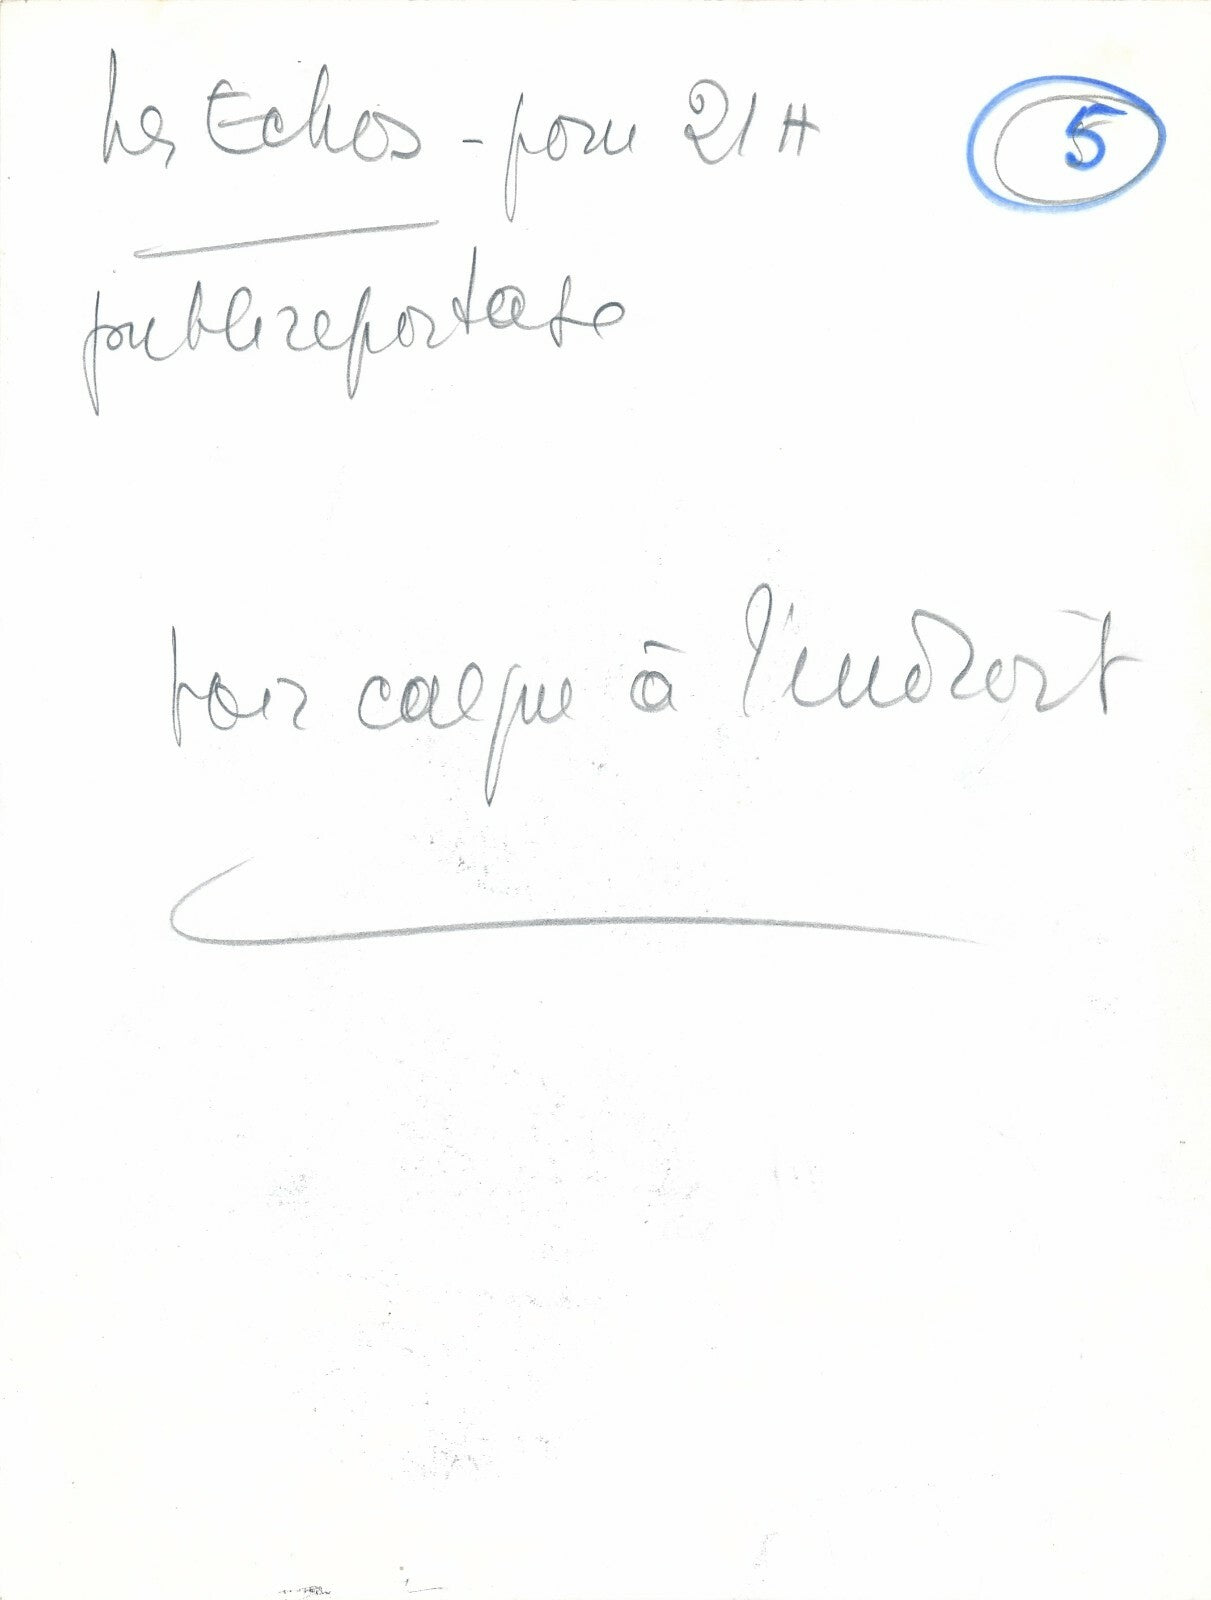 Les Echos - pour 21H
5
publireportage
voir calque à l'endroit